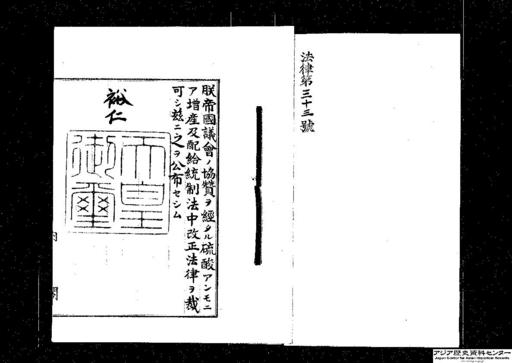 法律第三十三號
朕帝國議會ノ協贊ヲ經タル硫酸アンモニ
ア增産及配給統制法中改正法律ヲ裁
可シ玆ニ之ヲ公布セシム
裕仁
天皇御璽
内閣
アジア歴史資料センター
Japan Center for Asian Historical Records